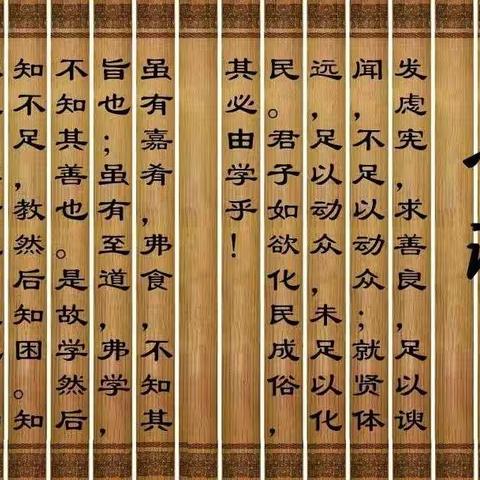 发虑宪，求善良，足以谀
闻，不足以动众；就贤体
远，足以动众，未足以化
民。君子如欲化民成俗，
其必由学乎！
虽有嘉肴，弗食，不知其
旨也；虽有至道，弗学，
不知其善也。是故学然后
知不足，教然后知困。知